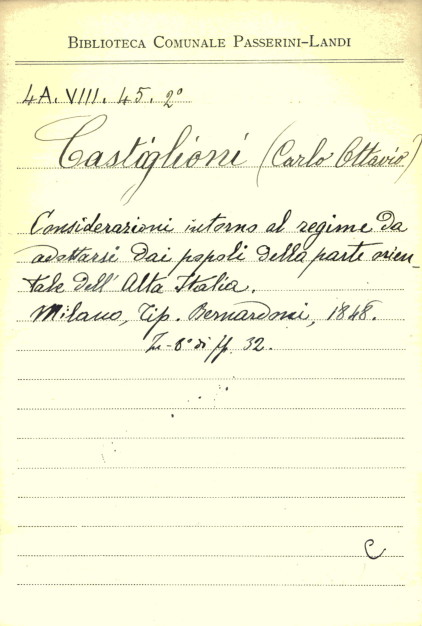 BIBLIOTECA COMUNALE PASSERINI-LANDI
4A. VIII. 45. 2°
Castiglioni (Carlo Ottavio)
Considerazioni intorno al regime da
adottarsi dai popoli della parte orien-
tale dell' Alta Italia.
Milano, Tip. Bernardoni, 1848.
In-8° di pp. 32.
C